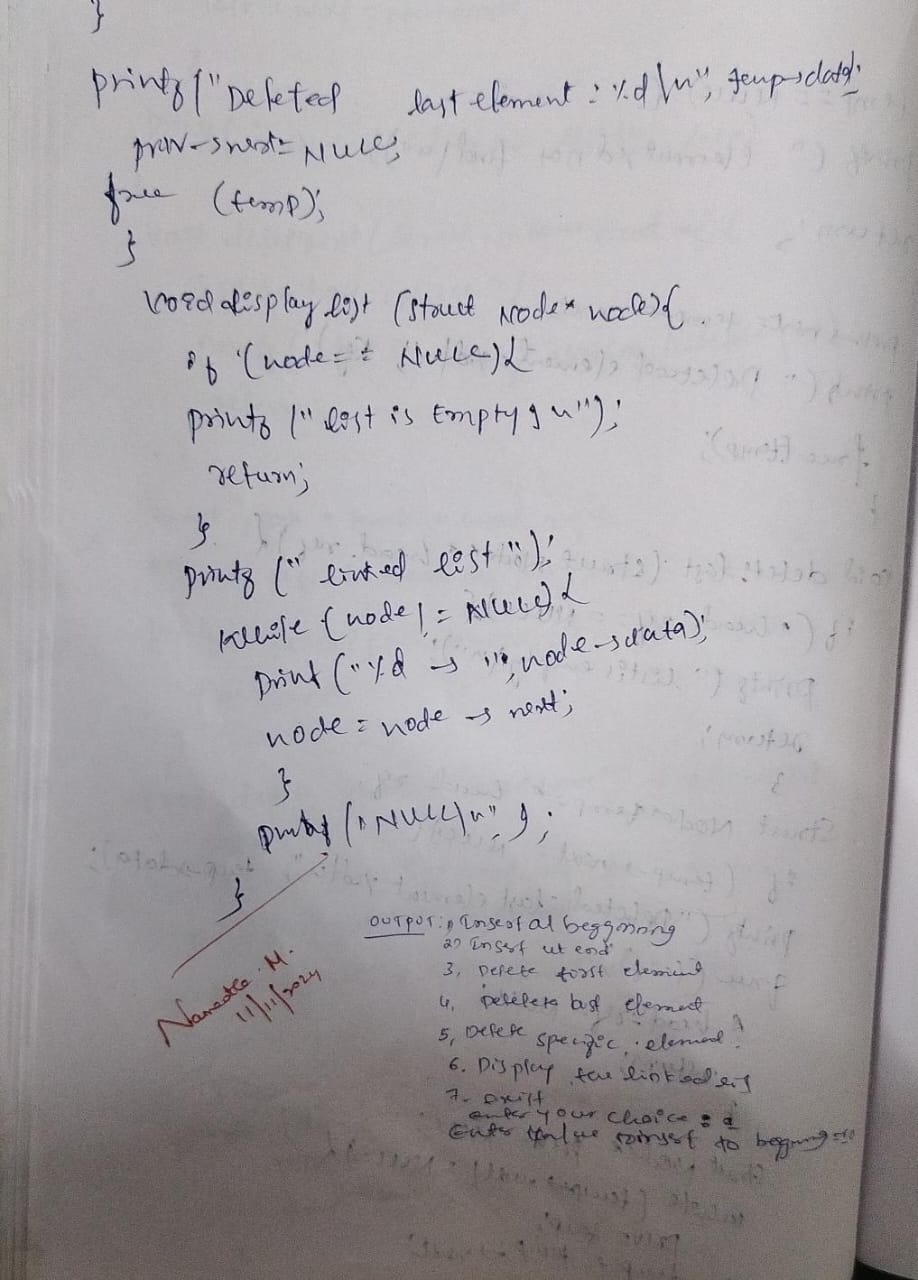 }
printf("Deleted last element : %d \n", temp→data);
prev→next = NULL;
free (temp);
}
void display list (struct Node* node){
if (node == NULL){
printf ("list is Empty \n");
return;
}
printf (" linked list ");
while (node != NULL) {
print ("%d → ", node→data);
node = node → next;
}
printf ("NULL\n");
}
OUTPUT: 1) Insert at beggining
2) Insert at end
3, Delete first element
4, Delelete last element
5, Delete specific element.
6. Display the linked list
7. Exitt
enter your choice : 1
Enter Value to insert to beggining
11/11/2024